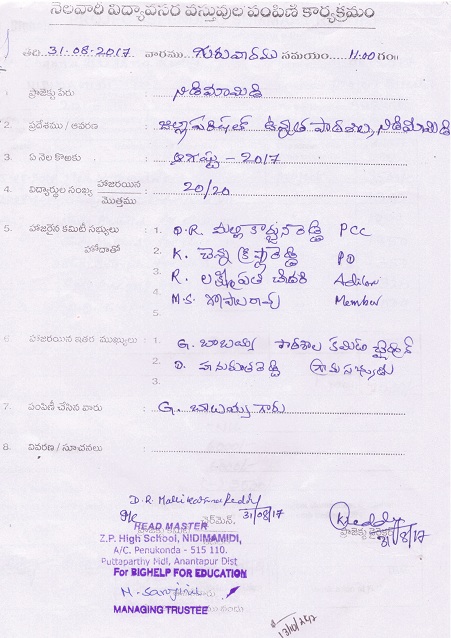 నెలవారీ విద్యావసర వస్తువుల పంపిణీ కార్యక్రమం
తేది 31-08-2017 వారము గురువారము సమయం 11.00 గం॥
1. ప్రాజెక్టు పేరు : నిడిమామిడి
2. ప్రదేశము / ఆవరణ : జిల్లాపరిషత్ ఉన్నత పాఠశాల, నిడిమామిడి
3. ఏ నెల కొఱకు : ఆగష్టు - 2017
4. విద్యార్థుల సంఖ్య హాజరయిన / మొత్తము : 20/20
5. హాజరైన కమిటీ సభ్యులు : 1. D.R. మల్లికార్జునరెడ్డి PCC
హోదాతో 2. K. చెన్నక్రిష్ణారెడ్డి PD
3. R. లక్ష్మీపతి చౌదరి
4. M.S. గోపాలరావు Member
5.
6. హాజరయిన ఇతర ముఖ్యులు : 1. G. బాబయ్య పాఠశాల కమిటి ఛైర్మన్
2. D. హనుమంతరెడ్డి గ్రామసభ్యుడు
3.
7. పంపిణీ చేసిన వారు : G. బాబయ్య గారు
8. వివరణ / సూచనలు :
D.R. Mallikarjuna Reddy
31/08/17
చైర్‌మెన్,
HEAD MASTER
Z.P. High School, NIDIMAMIDI,
A/C. Penukonda - 515 110.
Puttaparthy Mdl, Anantapur Dist
For BIGHELP FOR EDUCATION
MANAGING TRUSTEE
Kreddy
ప్రాజెక్టు డైరెక్టర్
31/8/17